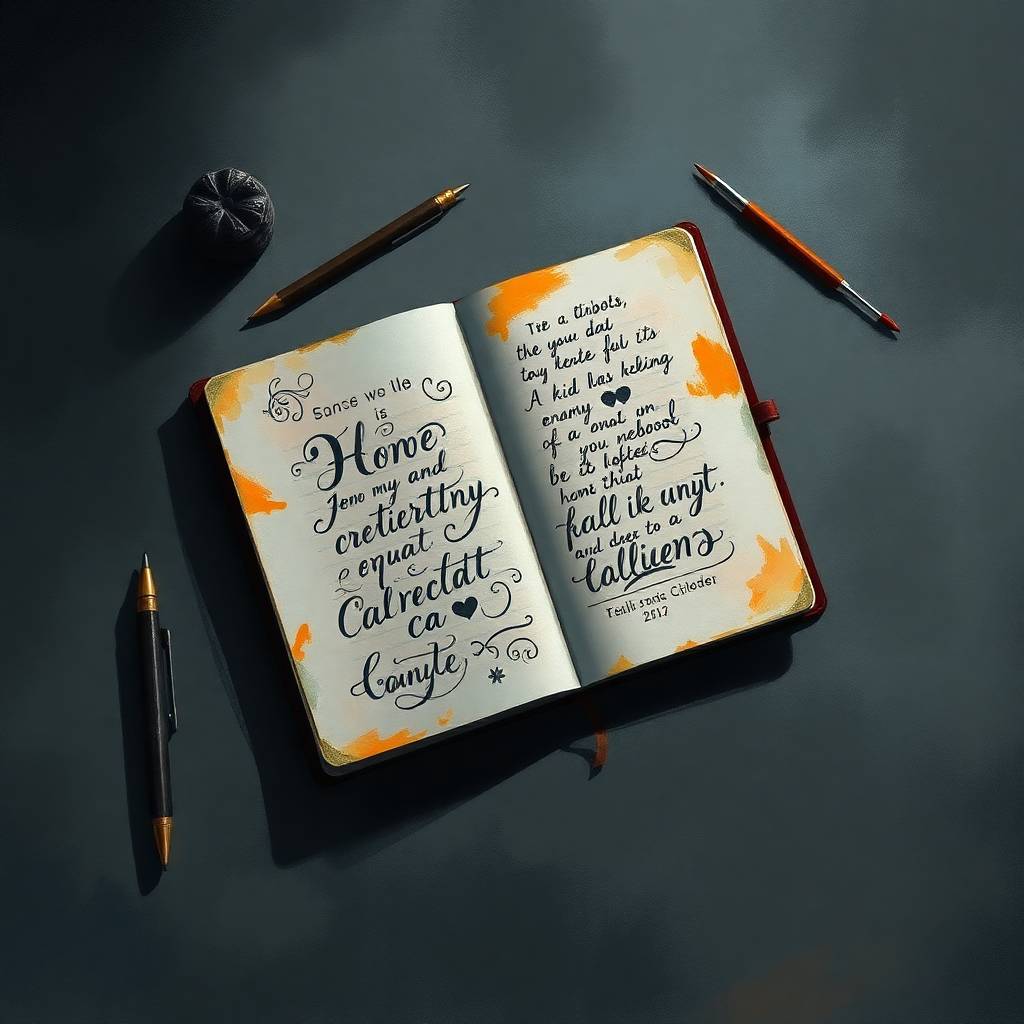 Sonse we lle
is
Home
Jeno my and
cretierttny
equat
Calrectdt
ca
Counyte
Tre a Etnbots,
the you dal
tovy kente ful its
A kid has keling
enarny
of a onat on
you neboool
be it lofte
home that
hall ik unyt.
and drer to a
Calliienz
Chloder
2517